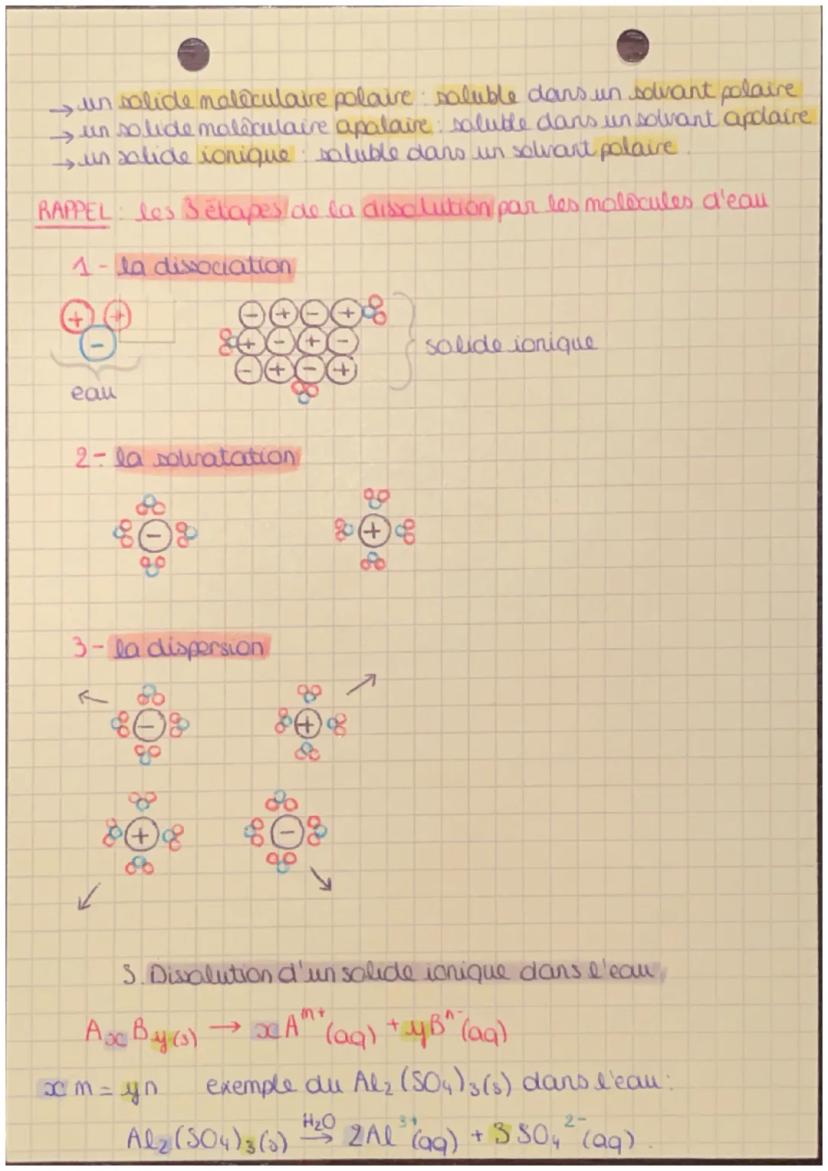 → un solide moléculaire polaire : soluble dans un solvant polaire
→ un solide moléculaire apolaire : soluble dans un solvant apolaire
→ un solide ionique : soluble dans un solvant polaire.
RAPPEL : les 3 étapes de la dissolution par les molécules d'eau
1 - la dissociation
+ + - + - + 
- + - + -
- + - +
solide ionique
eau
2 - la solvatation
- +
3 - la dispersion
- +
+ -
3. Dissolution d'un solide ionique dans l'eau
AxBy(s) → xAᵐ⁺(aq) + yBⁿ⁻(aq)
xm = yn exemple du Al₂(SO₄)₃(s) dans l'eau :
Al₂(SO₄)₃(s) H₂O → 2Al³⁺(aq) + 3SO₄²⁻(aq).